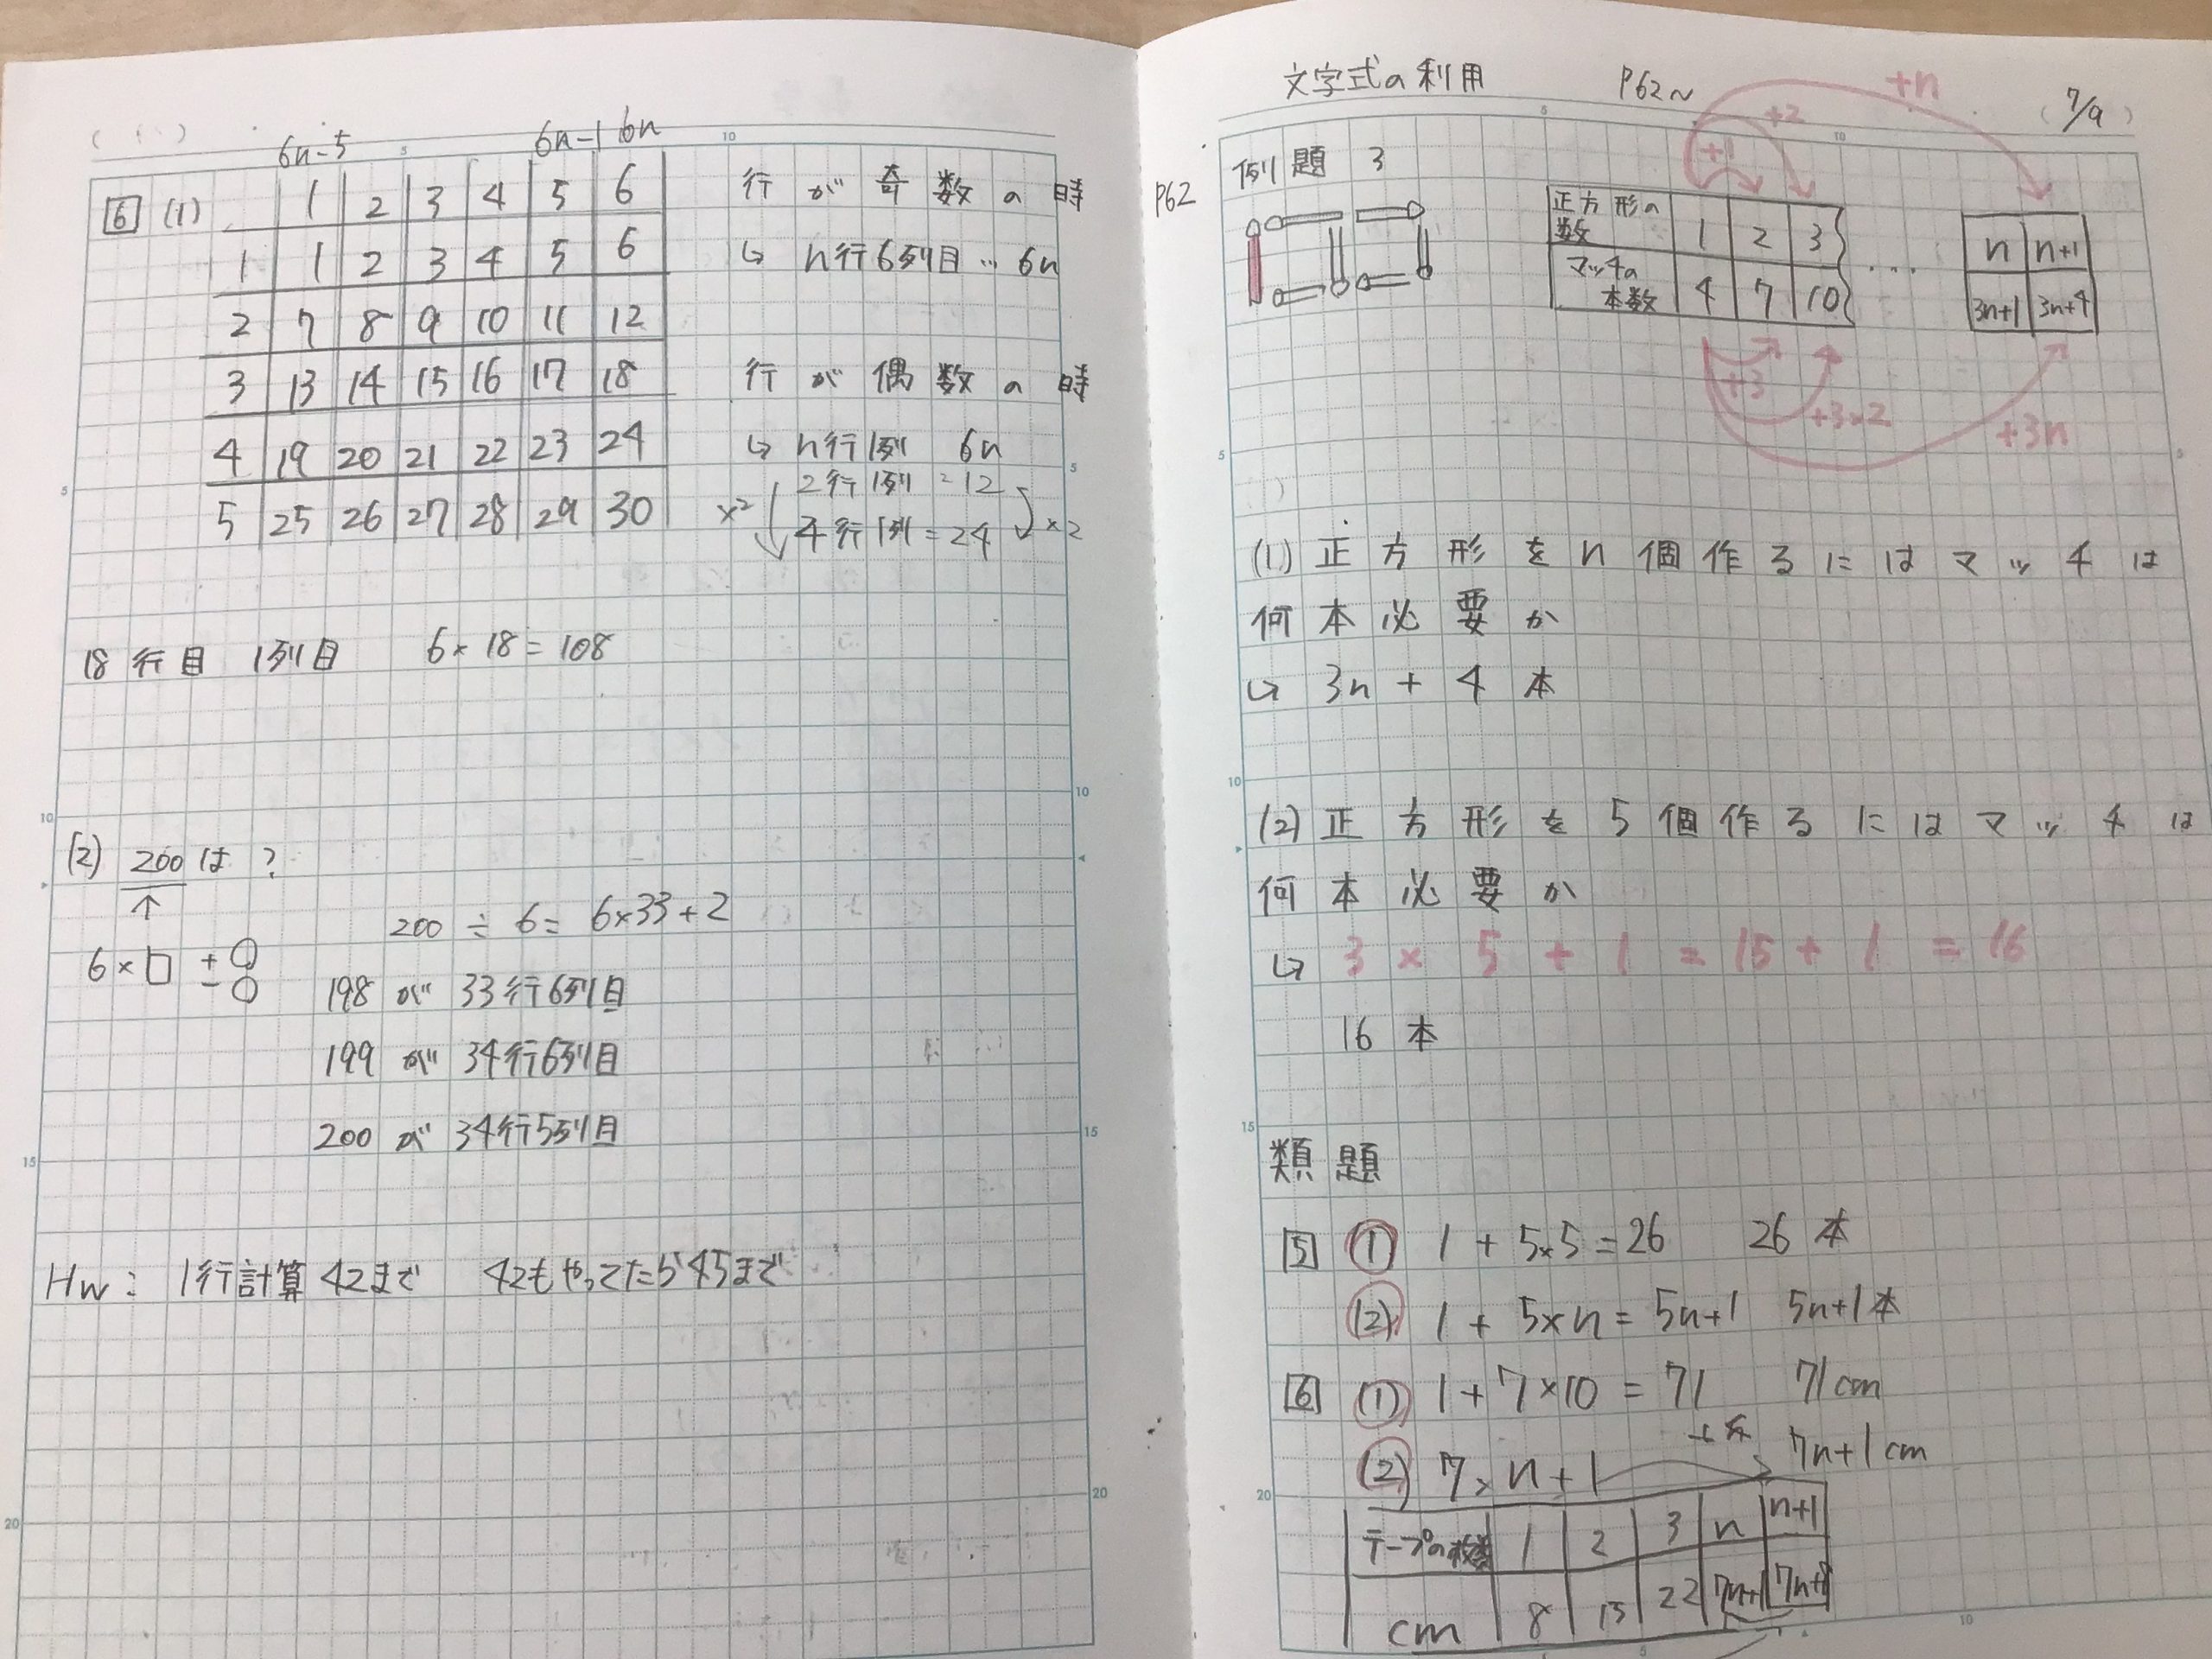 6n-5 6n-1 6n
6 (1) 1 2 3 4 5 6
1 1 2 3 4 5 6
2 7 8 9 10 11 12
3 13 14 15 16 17 18
4 19 20 21 22 23 24
5 25 26 27 28 29 30
行が奇数の時
↳ n行6列目…6n
行が偶数の時
↳ n行1列 6n
2行1列=12
×2 4行1列=24 ×2
18行目 1列目 6×18=108
(2) 200は?
↑
6×□+○
-○
200÷6=6×33+2
198が33行6列目
199が34行6列目
200が34行5列目
Hw: 1行計算42まで 42もやってたら45まで
文字式の利用 P62~ (7/9)
P62 例題3
+1 +2 +n
正方形の数 1 2 3 … n n+1
マッチの本数 4 7 10 3n+1 3n+4
+3 +3×2 +3n
(1)正方形をn個作るにはマッチは
何本必要か
↳ 3n+4本
(2)正方形を5個作るにはマッチは
何本必要か
↳ 3×5+1=15+1=16
16本
類題
5 (1) 1+5×5=26 26本
(2) 1+5×n=5n+1 5n+1本
6 (1) 1+7×10=71 71cm
(2) 7×n+1 7n+1cm
テープの枚数 1 2 3 n n+1
cm 8 15 22 7n+1 7n+8
5 10 15 20